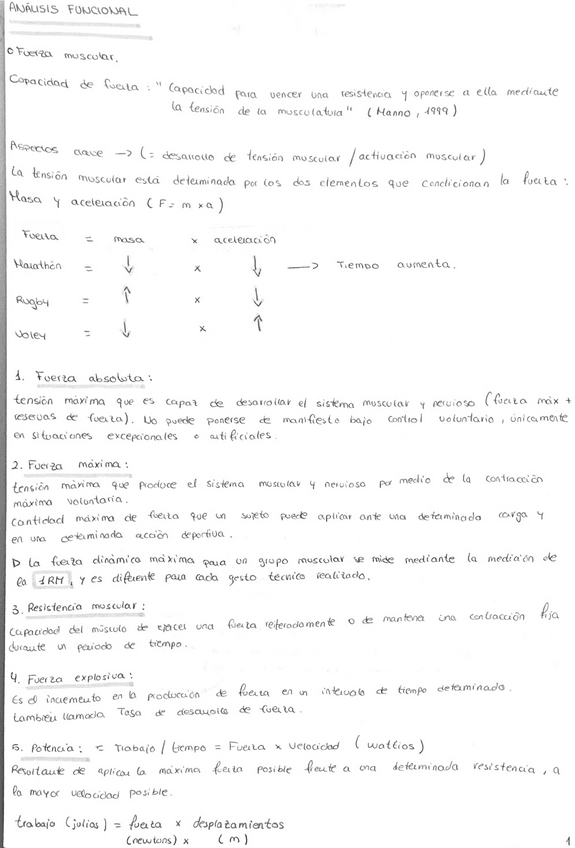 ANÁLISIS FUNCIONAL
o Fuerza muscular.
Capacidad de fuerza : " Capacidad para vencer una resistencia y oponerse a ella mediante
la tensión de la musculatura " ( Manno , 1999 )
Aspectos clave -> ( = desarrollo de tensión muscular / activación muscular )
La tensión muscular está determinada por los dos elementos que condicionan la fuerza :
Masa y aceleración ( F = m x a )
Fuerza = masa x aceleración
Marathón = ↓ x ↓ -> Tiempo aumenta.
Rugby = ↑ x ↓
Voley = ↓ x ↑
1. Fuerza absoluta :
tensión máxima que es capaz de desarrollar el sistema muscular y nervioso ( fuerza máx +
reservas de fuerza ). No puede ponerse de manifiesto bajo control voluntario , únicamente
en situaciones excepcionales o artificiales.
2. Fuerza máxima :
tensión máxima que produce el sistema muscular y nervioso por medio de la contracción
máxima voluntaria.
Cantidad máxima de fuerza que un sujeto puede aplicar ante una determinada carga y
en una determinada acción deportiva.
▷ La fuerza dinámica máxima para un grupo muscular se mide mediante la medición de
la 1RM , y es diferente para cada gesto técnico realizado.
3. Resistencia muscular :
Capacidad del músculo de ejercer una fuerza reiteradamente o de mantener una contracción fija
durante un periodo de tiempo.
4. Fuerza explosiva :
Es el incremento en la producción de fuerza en un intervalo de tiempo determinado.
también llamada Tasa de desarrollo de fuerza.
5. Potencia : = Trabajo / tiempo = Fuerza x velocidad ( wattios )
Resultante de aplicar la máxima fuerza posible frente a una determinada resistencia , a
la mayor velocidad posible.
trabajo ( julios ) = fuerza x desplazamientos
(newtons) x ( m )
1